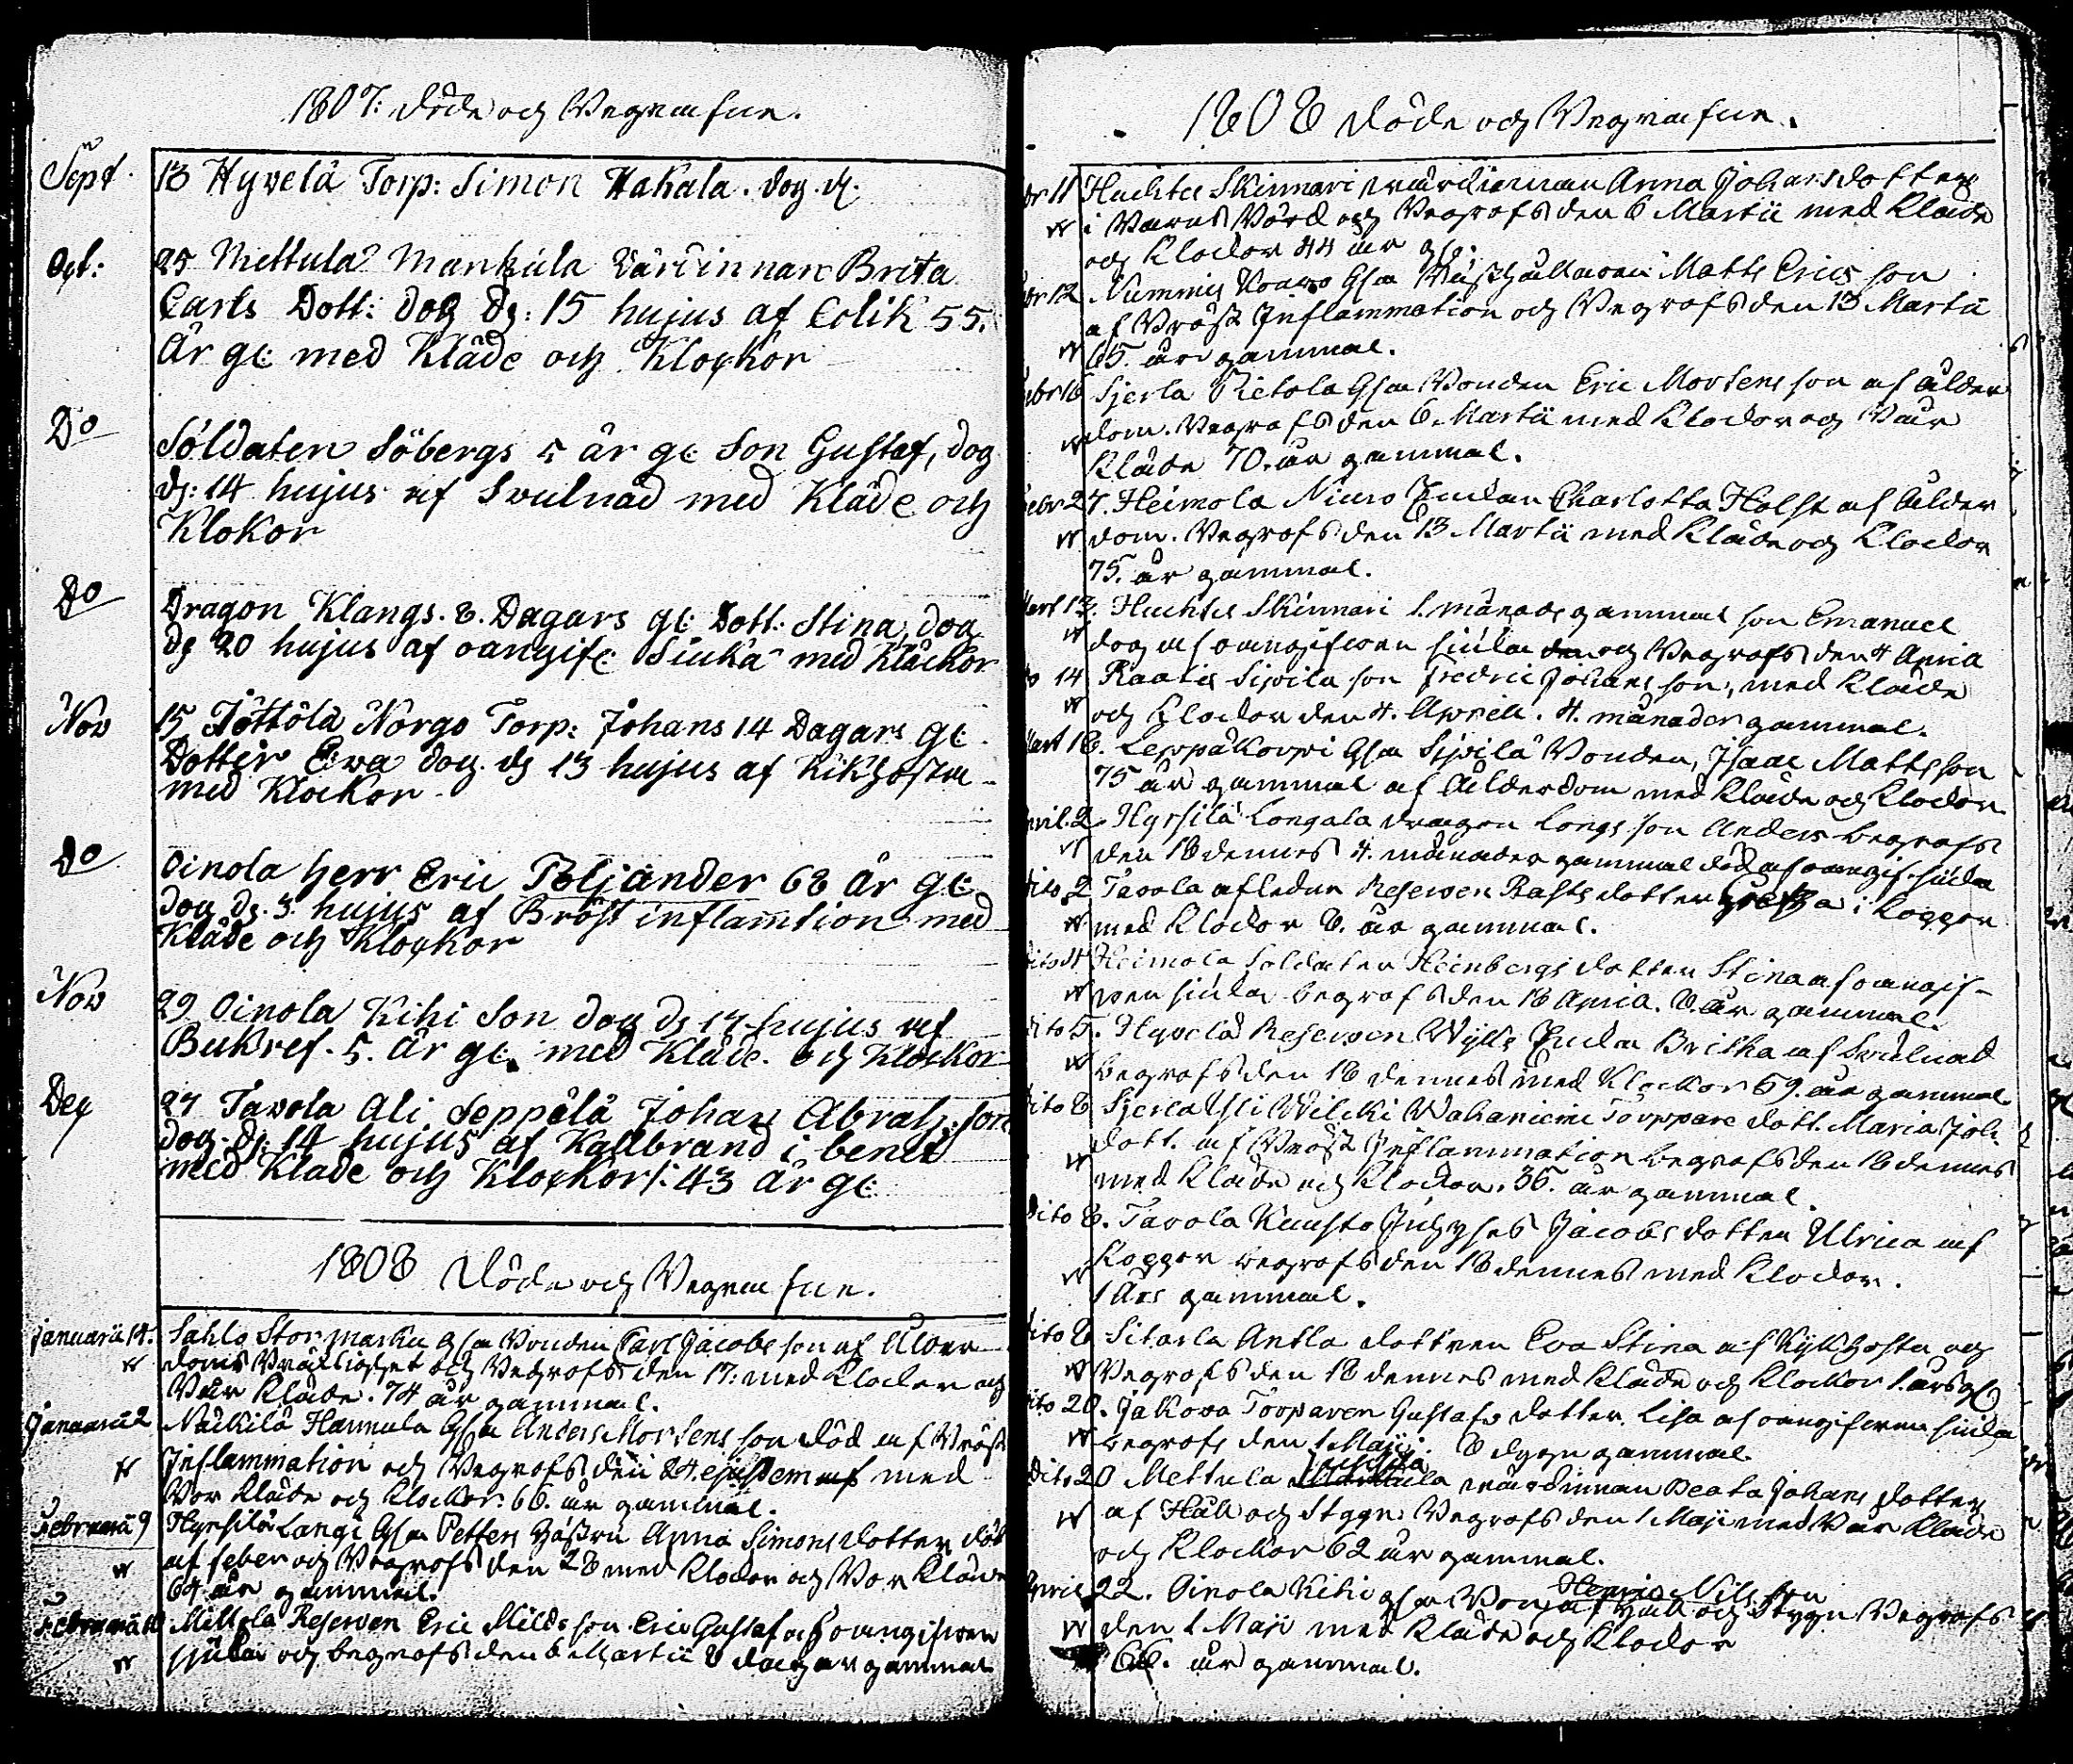 1807: Döde och Begrafne.
Sept. 13 Hyvelä Torp: Simon Hakala. dog d.
Oct: 25 Mettula Mankula Värdinnan Brita
Carls Dott: dog d: 15 hujus af Colik 55.
År gl: med Kläde och Klockor
Do Soldaten Söbergs 5 år gl: Son Gustaf, dog
d: 14 hujus af Svulnad med Kläde och
Klokor
Do Dragon Klangs. 8. Dagars gl: Dott: Stina, dog
d: 20 hujus af oangifl: Siuka med Klåckor
Nov 15 Jöttölä Norgo Torp: Johans 14 Dagars gl:
Dotter Eva dog. d: 13 hujus af Kikhosta
med Klockor
Do Oinola Herr Eric Poljander 68 år gl:
dog d: 3 hujus af Bröst inflamtion med
Kläde och Klockor
Nov 29 Oinola Kihi Son dog d: 17 hujus af
Bukref. 5. år gl. med Kläde och Klockor
Dec 27 Tavola Ali Seppälä Johan Abrah: son
dog d: 14 hujus af Kallbrand i benet
med Kläde och Klockor /: 43 år gl:
1808 Döde och Begrafne.
Januarii 14. Sahlo Stormarku Gla Bonden Carl Jacobs son af Ålder
doms Bräcklighet och Begrofs den 17: med Klockor och
Bår Kläde. 74 år gammal.
Januarii 2 Näckilä Hannula Gla Anders Mortens son död af Bröst
Inflammation och Begrofs den 24. ejusdem af med
Bår Kläde och Klockor. 66. år gammal.
Februarii 9 Hyrsilä Langi Gla Petters Hustru Anna Simons dotter död
af feber och Begrofs den 28 med Klockor och Bår Kläde
64 år gammal.
Februarii 10 Mettola Reserven Eric Milds son Eric Gustaf af oangifven
sjuka och begrofs den 6 Martii 8 dagar gammal
1808 Döde och Begrafne.
br 11 Huchtis Skinnari Värdinnan Anna Johans dotter
i Barns Börd och Begrofs den 6 Martii med Kläde
och Klockor 44 år gl:
br 12 Nummis Kovero Gla Matts Erics son
af Bröst Inflammation och Begrofs den 13 Martii
65. år gammal.
ebr 16 Sjerla Pietola Gla Bonden Eric Mortens son af Ålder
dom. Begrofs den 6. Martii med Klockor och Bår
Kläde 70. år gammal.
ebr 27. Heimola Niuro Enkan Charlotta Holst af Ålder
dom. Begrofs den 13 Martii med Kläde och Klockor
75. år gammal.
Mart 13. Huchtis Skinnari 1. månads gammal son Emanuel
dog af oangifven siuka och Begrofs den 4 April
o 14 Raatis Sipila son Fredric Johans son, med Kläde
och Klockor den 4. Aprill. 4. månader gammal.
Mart 18. Leppäkorpi Gla Sipilä Bonden, Isaac Matts son
75 år gammal af Ålderdom med Kläde och Klockor
pril. 2 Hyrsilä Longala dragon Longs son Anders begrofs
den 18 dennes 4. månader gammal död af oangif. siuka
Dito 2 Tavola afledne Reserven Rasks dotter Greta i Koppor
med Klockor 8. år gammal.
Dito 4 Heimola Soldaten Heinbergs dotter Stina af oangif-
ven siuka begrofs den 18 April. 8. år gammal.
Dito 5. Hyvelä Reserven Wylls Enka Britha af Svulnad
begrofs den 18 dennes med Klockor 69. år gammal
Dito 8 Sjerla Isti Wilcki Wahaniemi Torppare dott. Maria Joh:
dott. af Bröst Inflammation begrofs den 18 dennes
med Kläde och Klockor. 36. år gammal.
Dito 8. Tavola Knusto Inhyses Jacobs dotter Ulrica af
Koppor begrofs den 18 dennes med Klockor.
1 Års gammal.
Dito 8 Sitarla Antla dottren Eva Stina af Kykhosta och
Begrofs den 18 dennes med Kläde och Klockor 1. års gl:
Dito 20. Jakova Torparen Gustafs dotter Lisa af oangifven siuka
begrofs den 1 Maji. 8 dygn gammal.
Dito 20 Mettula värdinnan Beata Johans dotter
af Håll och Stygn Begrofs den 1 Maji med Bår Kläde
och Klockor 62 år gammal.
April 22. Oinola Kihi gla Bon. Henric Nils son
af Håll och Stygn Begrofs
den 1 Maji med Kläde och Klockor
66. år gammal.